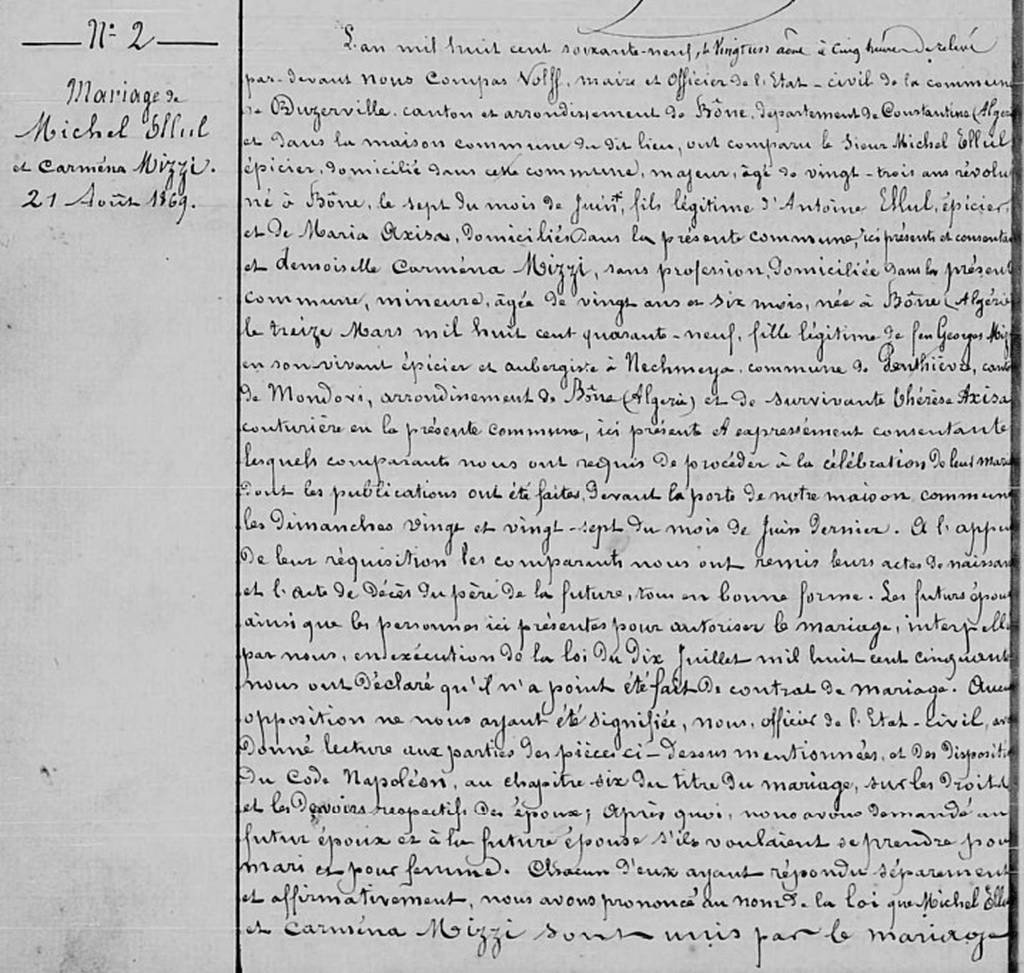 N.º 2
Mariage de
Michel Ellul
et Carména Mizzi.
21 Août 1869.
L'an mil huit cent soixante-neuf, le Vingt un août à cinq heures de relevé
par-devant nous Compas Volff, maire et Officier de l'Etat-civil de la commune
de Duzerville, canton et arrondissement de Bône, département de Constantine (Algér
et dans la maison commune du dit lieu, ont comparu le Sieur Michel Ellul
épicier, domicilié dans cette commune, majeur, âgé de vingt-trois ans révolu
né à Bône, le sept du mois de Juin, fils légitime d'Antoine Ellul, épicier,
et de Maria Axisa, domiciliés dans la présente commune, ici présents et consenta
et demoiselle Carména Mizzi, sans profession, domiciliée dans la présent
commune, mineure, âgée de vingt ans et six mois, née à Bône (Algérie
le treize Mars mil huit cent quarante-neuf, fille légitime de feu Georges Miz
en son vivant épicier et aubergiste à Nechmeya, commune de Penthièvre, cant
de Mondovi, arrondissement de Bône (Algerie) et de survivante Thérèse Axisa
couturière en la présente commune, ici présente et expressément consentante
lesquels comparants nous ont requis de procéder à la célébration de leur maria
dont les publications ont été faites, devant la porte de notre maison commune
les dimanches vingt et vingt-sept du mois de Juin dernier. A l'appu
de leur réquisition les comparants nous ont remis leurs actes de naissan
et l'acte de Décès du père de la future, tous en bonne forme. Les futurs épou
ainsi que les personnes ici présentes pour autoriser le mariage, interpellé
par nous, en exécution de la loi du dix Juillet mil huit cent cinquante
nous ont déclaré qu'il n'a point été fait de contrat de mariage. Aucu
opposition ne nous ayant été signifiée, nous, officier de l'Etat-civil, avo
donné lecture aux parties des pièces ci-dessus mentionnées, et des dispositi
du Code Napoléon, au chapitre six du titre du mariage, sur les droits
et les devoirs respectifs des époux; Après quoi, nous avons demandé au
futur époux et à la future épouse s'ils voulaient se prendre pou
mari et pour femme. Chacun d'eux ayant répondu séparement
et affirmativement, nous avons prononcé au nom de la loi que Michel Ellu
et Carména Mizzi sont unis par le mariage